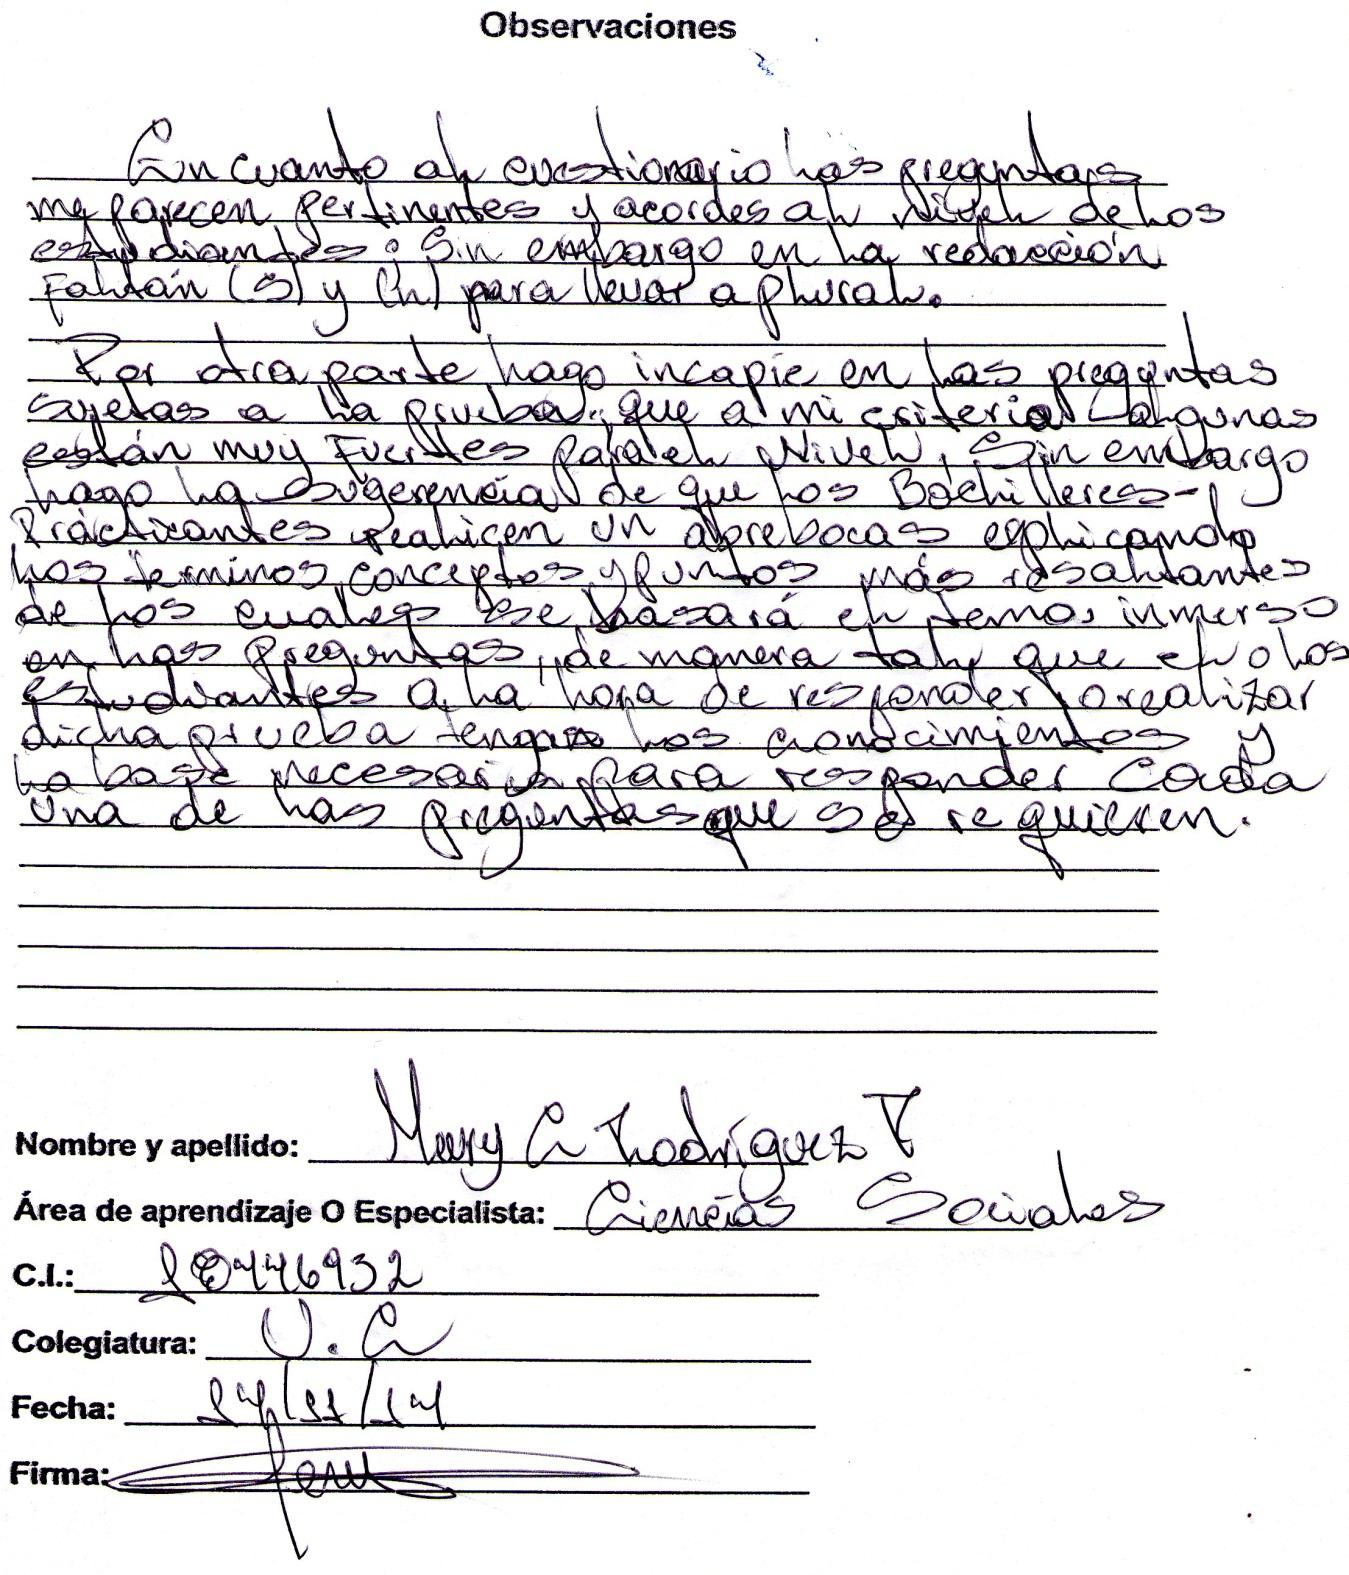 Observaciones
En cuanto al cuestionario las preguntas
me parecen pertinentes y acordes al Nivel de los
estudiantes; Sin embargo en la redacción
Faltan (S) y (n) para llevar a plural.
Por otra parte hago incapie en las preguntas
sujetas a la prueba, que a mi criterio algunas
están muy Fuertes para el Nivel, Sin embargo
hago la sugerencia de que los Bachilleres-
Practicantes realicen un abrebocas explicando
los terminos, conceptos y puntos más resaltantes
de los cuales se basará el tema inmerso
en las preguntas, de manera tal que el o los
estudiantes a la hora de responder o realizar
dicha prueba tengan los conocimientos y
la base necesaria para responder cada
una de las preguntas que se requieren.
Nombre y apellido: Mary C Rodríguez T
Área de aprendizaje O Especialista: Ciencias Sociales
C.I.: 18446932
Colegiatura: U.C
Fecha: 14/11/14
Firma: